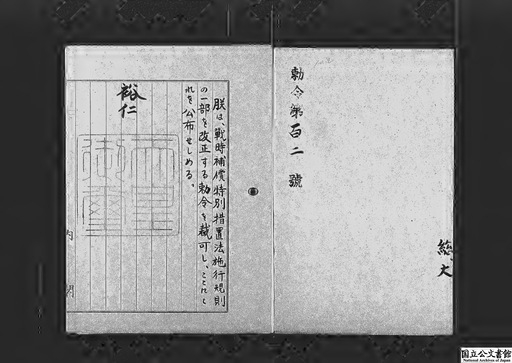 勅令第百二號
総大
朕は、戰時補償特別措置法施行規則
の一部を改正する勅令を裁可し、ここにこ
れを公布せしめる。
裕仁
内閣
国立公文書館
National Archives of Japan